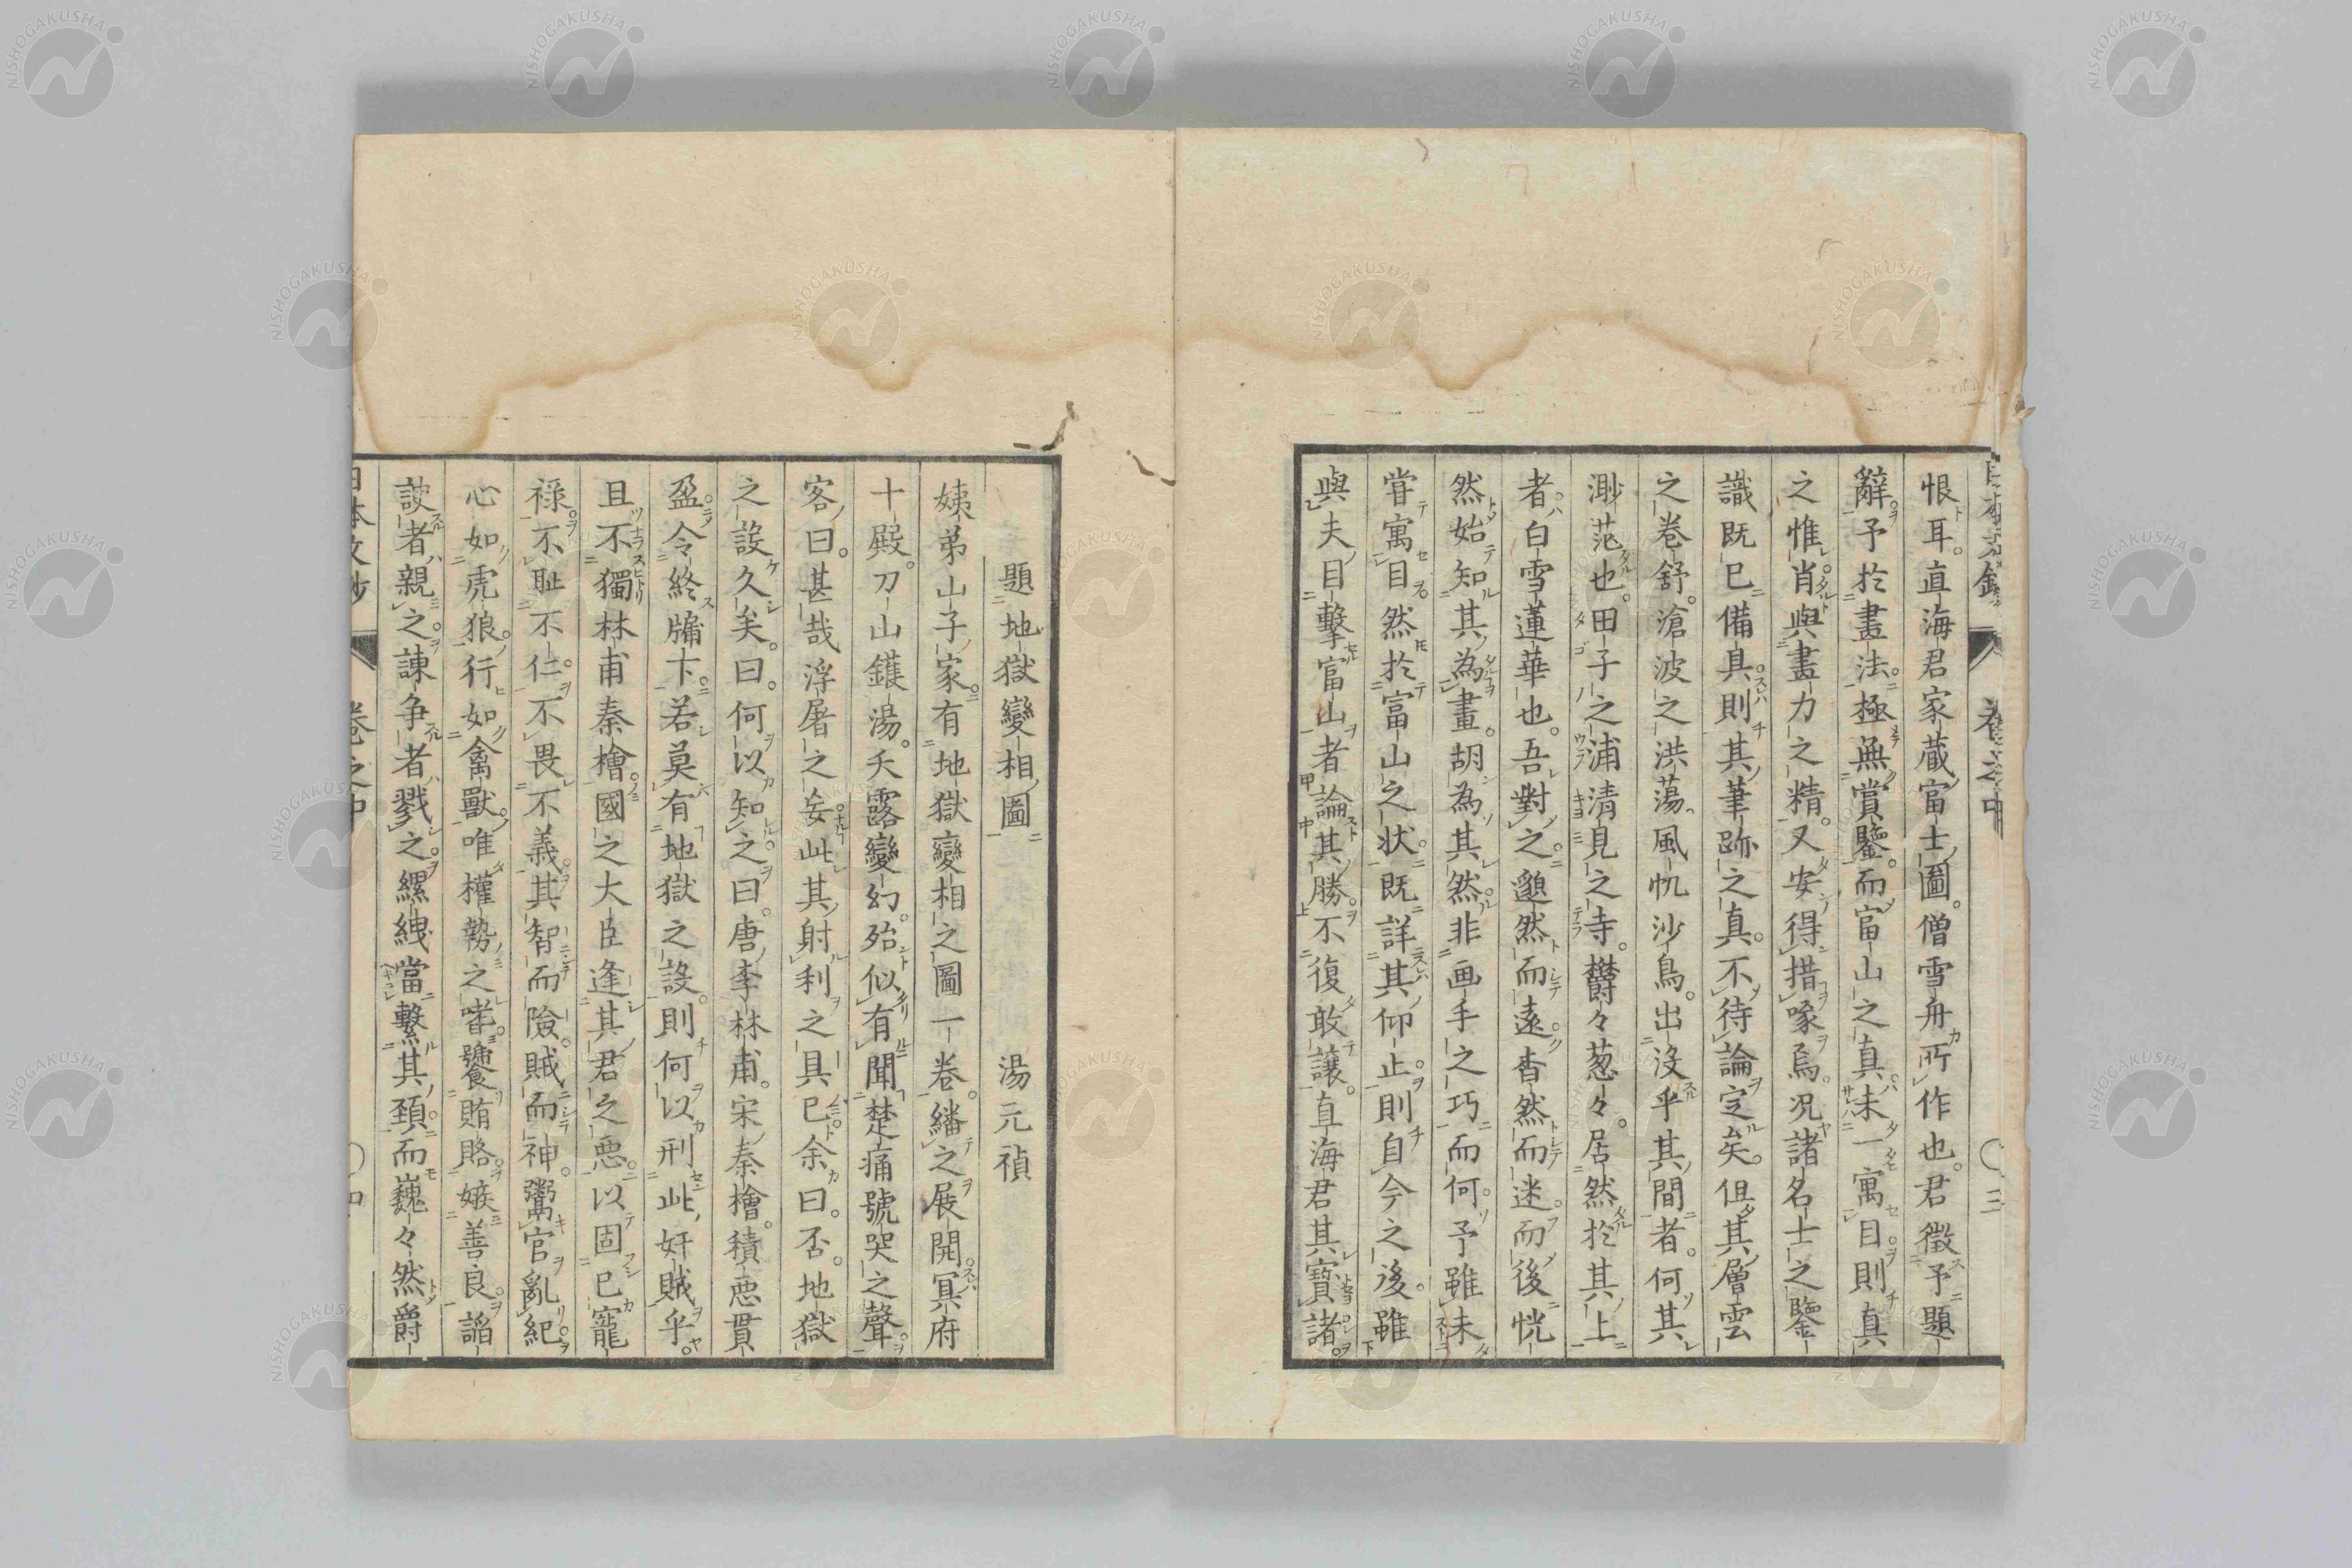 恨耳。直海君家蔵富士圖。僧雪舟所作也。君徴予題
辭。予於畫法極無賞鑒。而富山之真。未一寓目。則真
之惟肖。與畫力之精。又安得措喙焉。况諸名士之鑒
識既已備具。則其筆跡之真。不待論定矣。但其層雲
之卷舒。滄波之洪蕩。風帆沙鳥。出没乎其間者。何其
渺茫也。田子之浦清見之寺。欝々葱々。居然於其上
者。白雪蓮華也。吾對之。邈然而遠。杳然而迷。而後恍
然始知其為畫。胡為其然。非画手之巧而何。予雖未
甞寓目。然於富山之状。既詳其仰止。則自今之後。雖
與夫目擊富山者論其勝。不復敢譲。直海君其寶諸。
題地獄變相圖 湯元禎
姨弟山子家。有地獄變相之圖一卷。繙之展開。冥府
十殿。刀山鑊湯。夭露變幻。殆似有聞楚痛號哭之聲。
客曰。甚哉浮屠之妄。此其射利之具已。余曰。否。地獄
之設久矣。曰。何以知之。曰。唐李林甫。宋秦檜。積惡貫
盈。令終牖下。若莫有地獄之設。則何以刑此奸賊乎。
且不獨林甫秦檜。國之大臣逢其君之惡。以固己寵
禄。不耻不仁。不畏不義。其智而險。賊而神。鬻官亂紀。
心如虎狼。行如禽獸。唯權勢之嗜。饕賄賂。嫉善良。諂
諛者親之。諫争者戮之。縲絏當繫其頚。而巍々然爵
卷之中